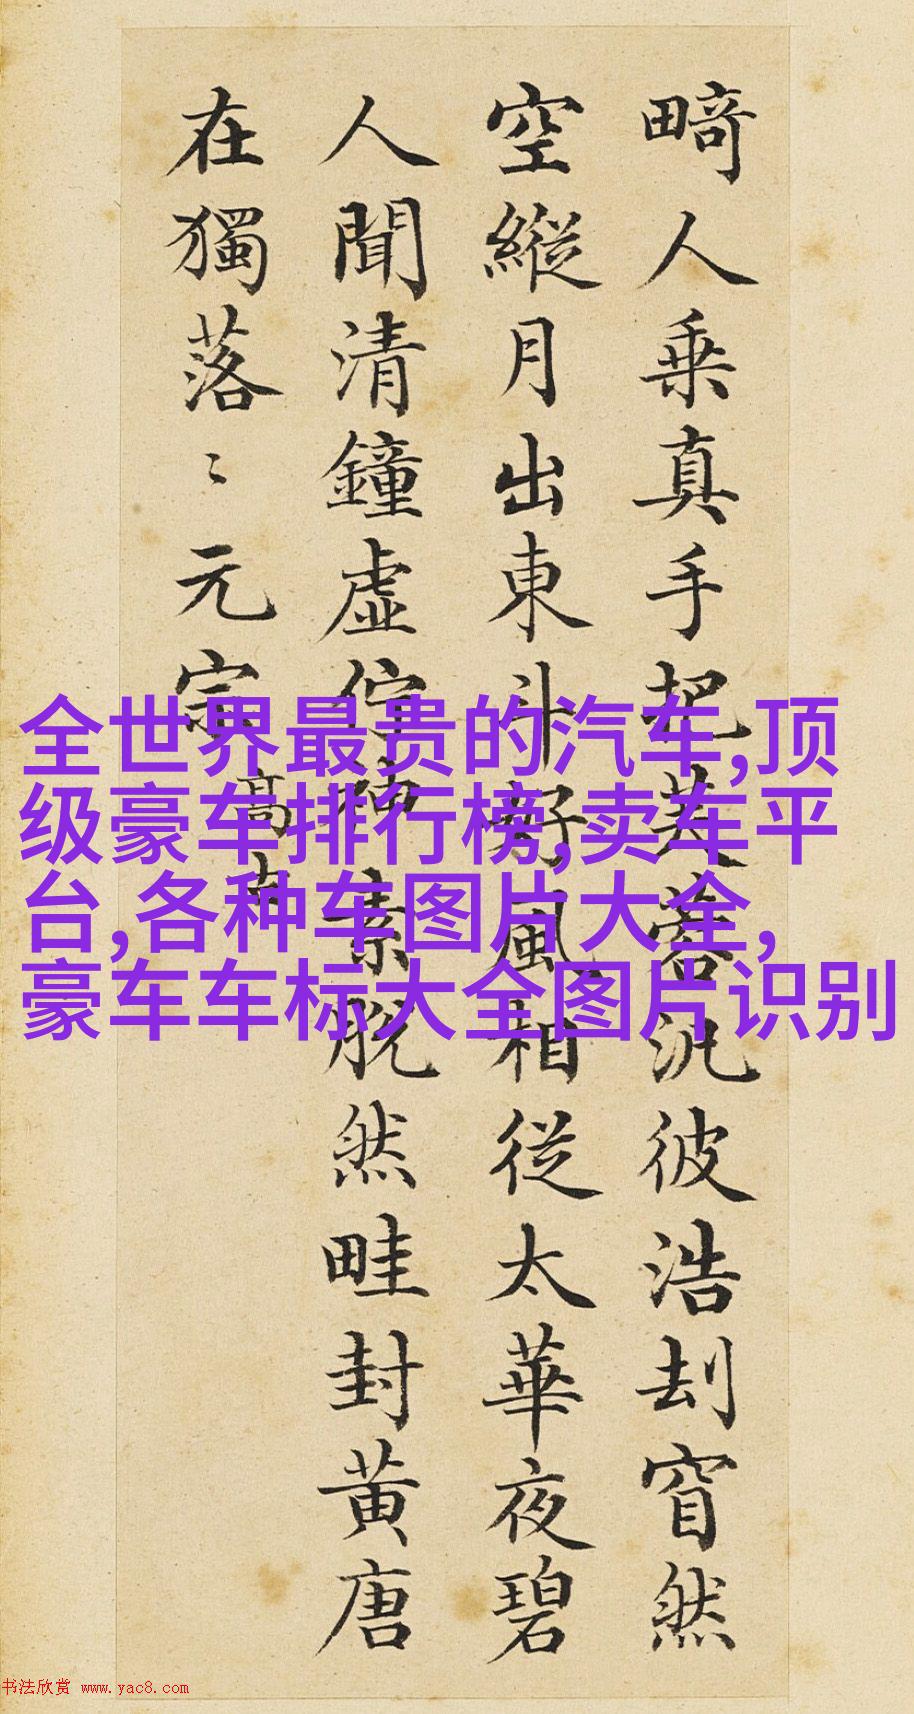 畸人乗真手把芙蓉汎彼浩刦窅然
空縱月出東斗好風相從太華夜碧
人聞清鐘虛佇神素脫然畦封黄唐
在獨落〻元宗
高古
全世界最贵的汽车,顶
级豪车排行榜,卖车平
台,各种车图片大全,
豪车车标大全图片识别
书法欣赏 www.yac8.com